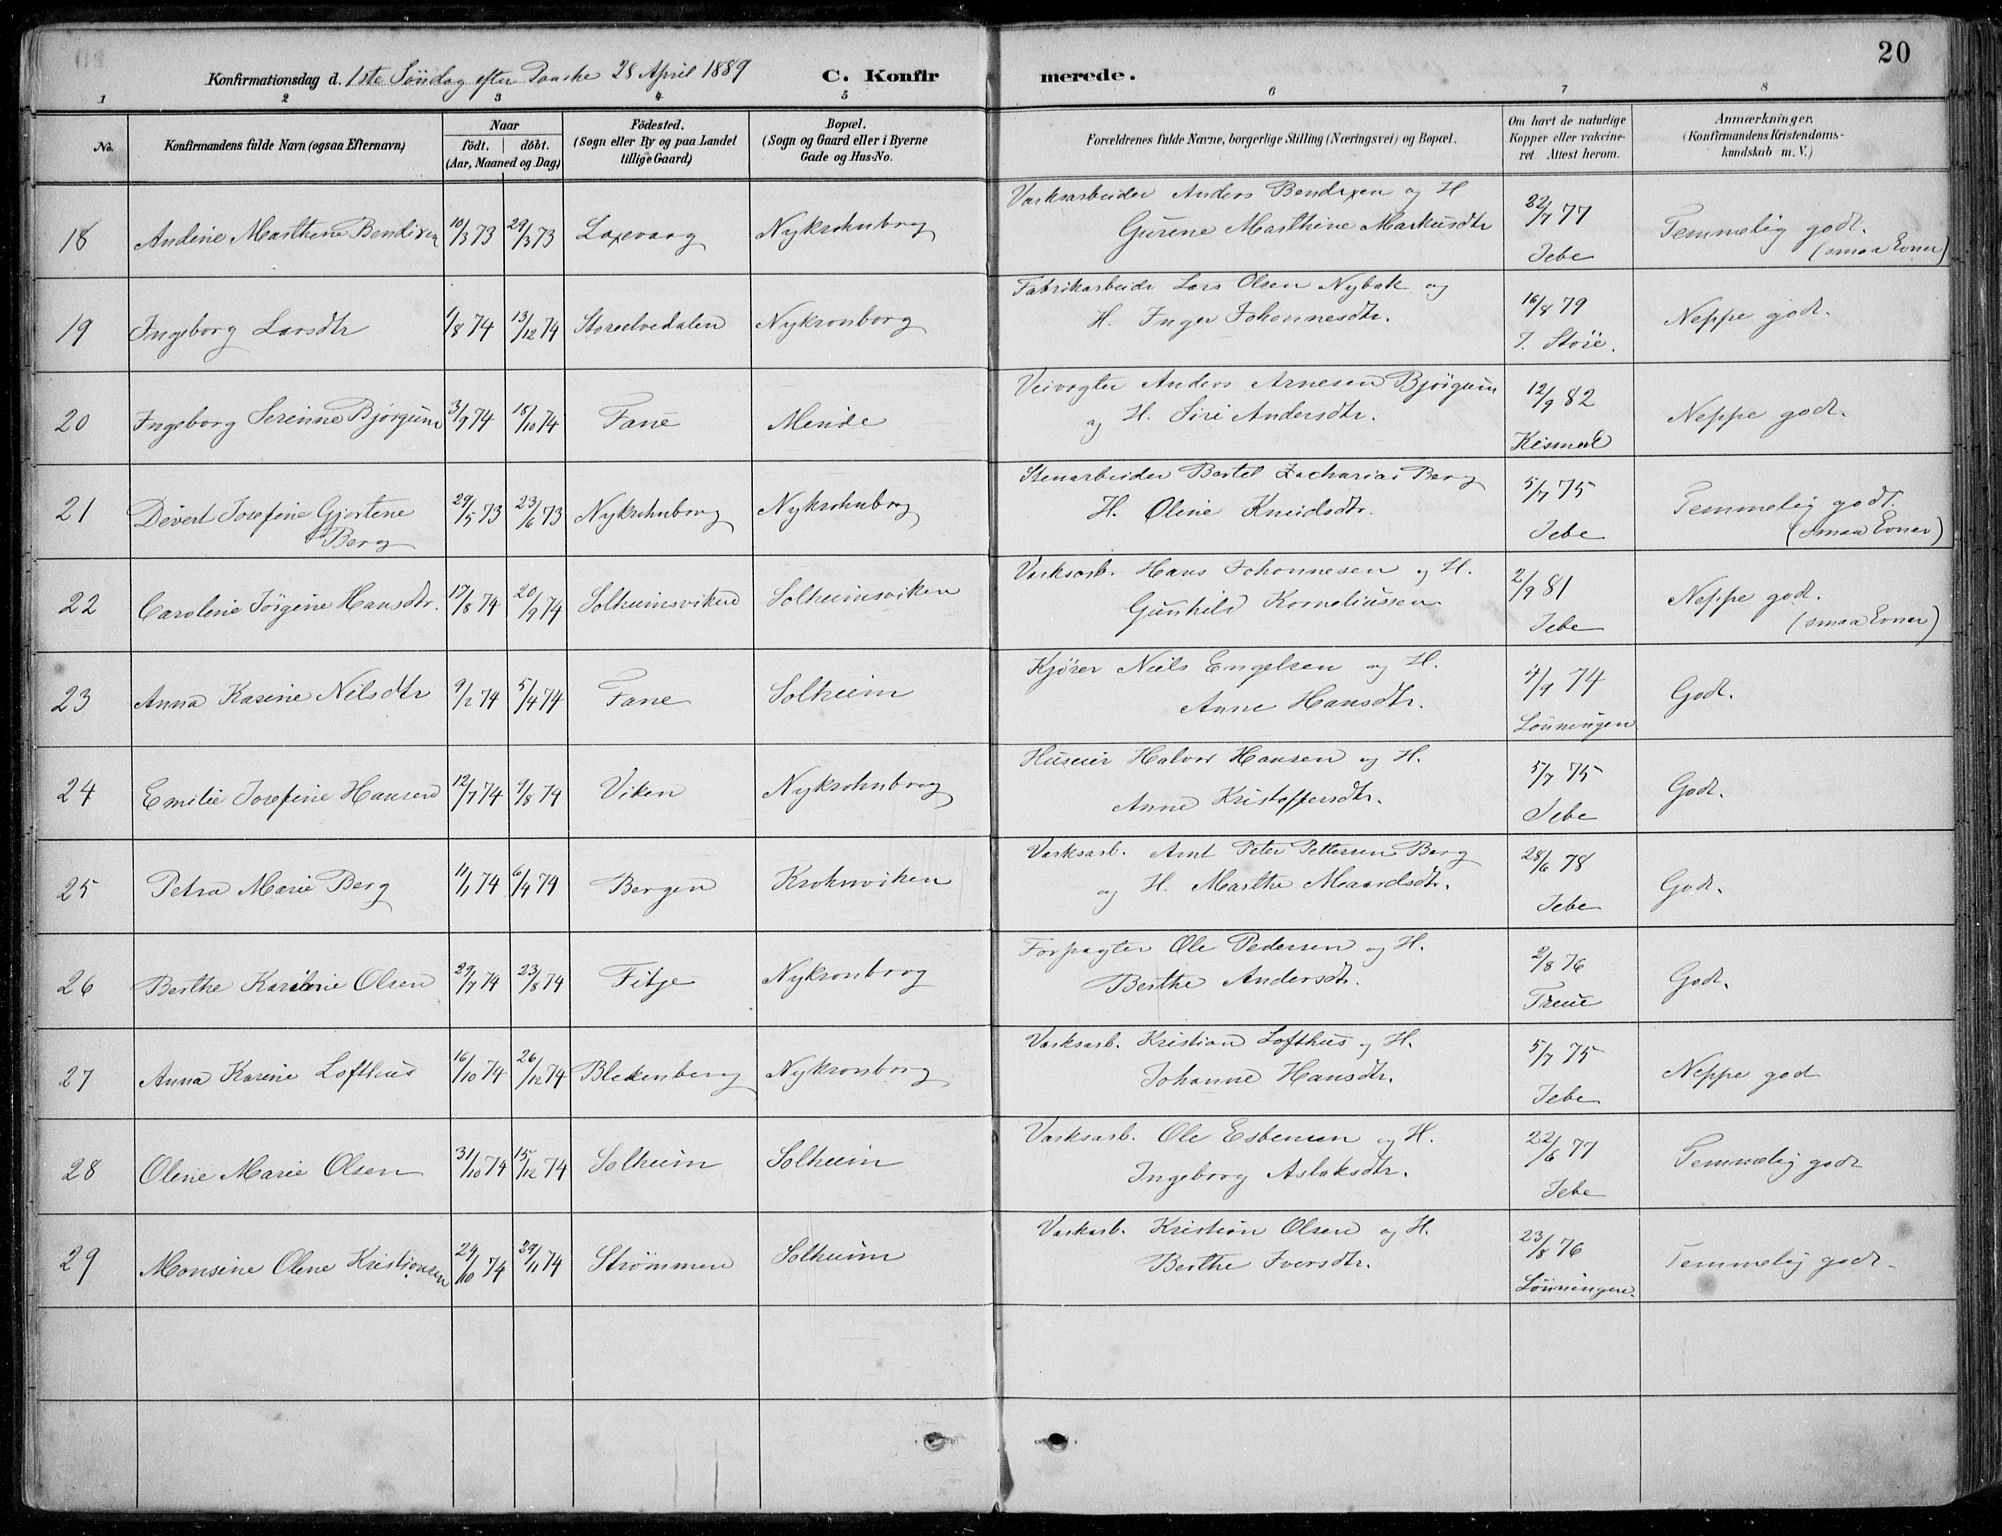 20
Konfirmationsdag d. 1ste Söndag efter Paaske 28 April 1889 C. Konfirmerede.
1 2 3 4 5 6 7 8
No. Konfirmandens fulde Navn (ogsaa Efternavn) Naar födt. döbt. (Aar, Maaned og Dag) Födested. (Sogn eller By og paa Landet tillige Gaard) Bopæl. (Sogn og Gaard eller i Byerne Gade og Hus-No. Forældrenes fulde Navne, borgerlige Stilling (Næringsvei) og Bopæl. Om havt de naturlige Kopper eller vakcineret. Attest herom. Anmærkninger. (Konfirmandens Kristendomskundskab m. V.)
18 Andine Marthine Bendixen 10/3 73 29/3 73 Laxevaag Nykrohnborg Værksarbeider Anders Bendixen og H Gurene Marthine Markusdtr 22/7 77 Jebe Temmelig godt. (smaa Evner)
19 Ingeborg Larsdtr 1/8 74 13/12 74 Storelvedalen Nykronborg Fabrikarbeider Lars Olsen Nybak og H. Inger Johannesdtr. 16/8 79 J. Støre. Neppe godt.
20 Ingeborg Serinne Bjørgum 3/9 74 18/10 74 Fane Minde Veivogter Anders Arnesen Bjørgum og H. Siri Andersdtr. 12/9 82 Neppe godt.
21 Devert Josefine Gjertine Berg 29/5 73 23/6 73 Nykrohnborg Nykrohnborg Stenarbeider Bertel Zacharias Berg H. Oline Knudsdtr. 5/7 75 Jebe Temmelig godt. (smaa Evner)
22 Caroline Jörgine Hansdtr. 17/8 74 20/9 74 Solheimsviken Solheimsviken Værksarb. Hans Johannesen og H. Gunhild Korneliussen 2/9 81 Jebe Neppe godt. (smaa Evner)
23 Anna Kasine Nilsdtr 9/2 74 5/4 74 Fane Solheim Kjører Niels Engelsen og H. Anne Hansdtr. 4/9 74 Lönningen Godt.
24 Emilie Josefine Hansen 12/7 74 9/8 74 Viken Nykrohnborg Huseier Halvor Hansen og H. Anne Kristoffersdtr. 5/7 75 Jebe Godt.
25 Petra Marie Berg 11/1 74 6/4 74 Bergen Krohnviken Værksarb. Arnt Peter Pettersen Berg og H. Marthe Maardsdtr. 28/6 78 Jebe Godt.
26 Berthe Karoline Olsen 29/7 74 23/8 74 Fitje Nykronborg Forpagter Ole Pedersen og H. Berthe Andersdtr. 2/8 76 Godt.
27 Anna Karine Lofthus 16/10 74 26/12 74 Blekenberg Nykronborg Værksarb. Kristian Lofthus og H. Johanne Hansdtr. 5/7 75 Jebe Neppe god
28 Olene Marie Olsen 31/10 74 15/12 74 Solheim Solheim Værksarb. Ole Esbensen og H. Ingeborg Aslaksdtr. 22/6 77 Jebe Temmelig godt
29 Monsine Olene Kristiansen 24/10 74 29/11 74 Strømmen Solheim Værksarb. Kristian Olsen og H. Berthe Iversdtr. 23/8 76 Lönningen. Temmelig godt